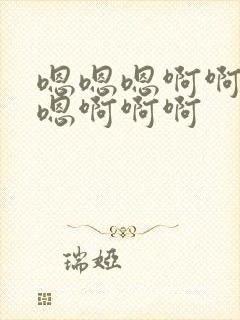 嗯嗯嗯啊啊
嗯啊啊啊
瑞娅